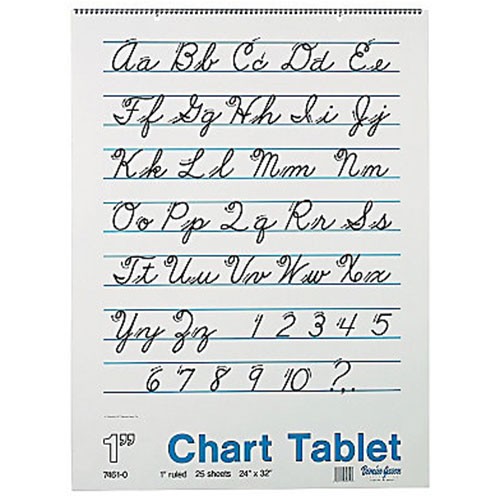 Aa Bb Cc Dd Ee
Ff Gg Hh Ii Jj
Kk Ll Mm Nn
Oo Pp Qq Rr Ss
Tt Uu Vv Ww Xx
Yy Zz 1 2 3 4 5
6 7 8 9 10 ? , .
1" Chart Tablet
7451-0 1" ruled 25 sheets 24" x 32"